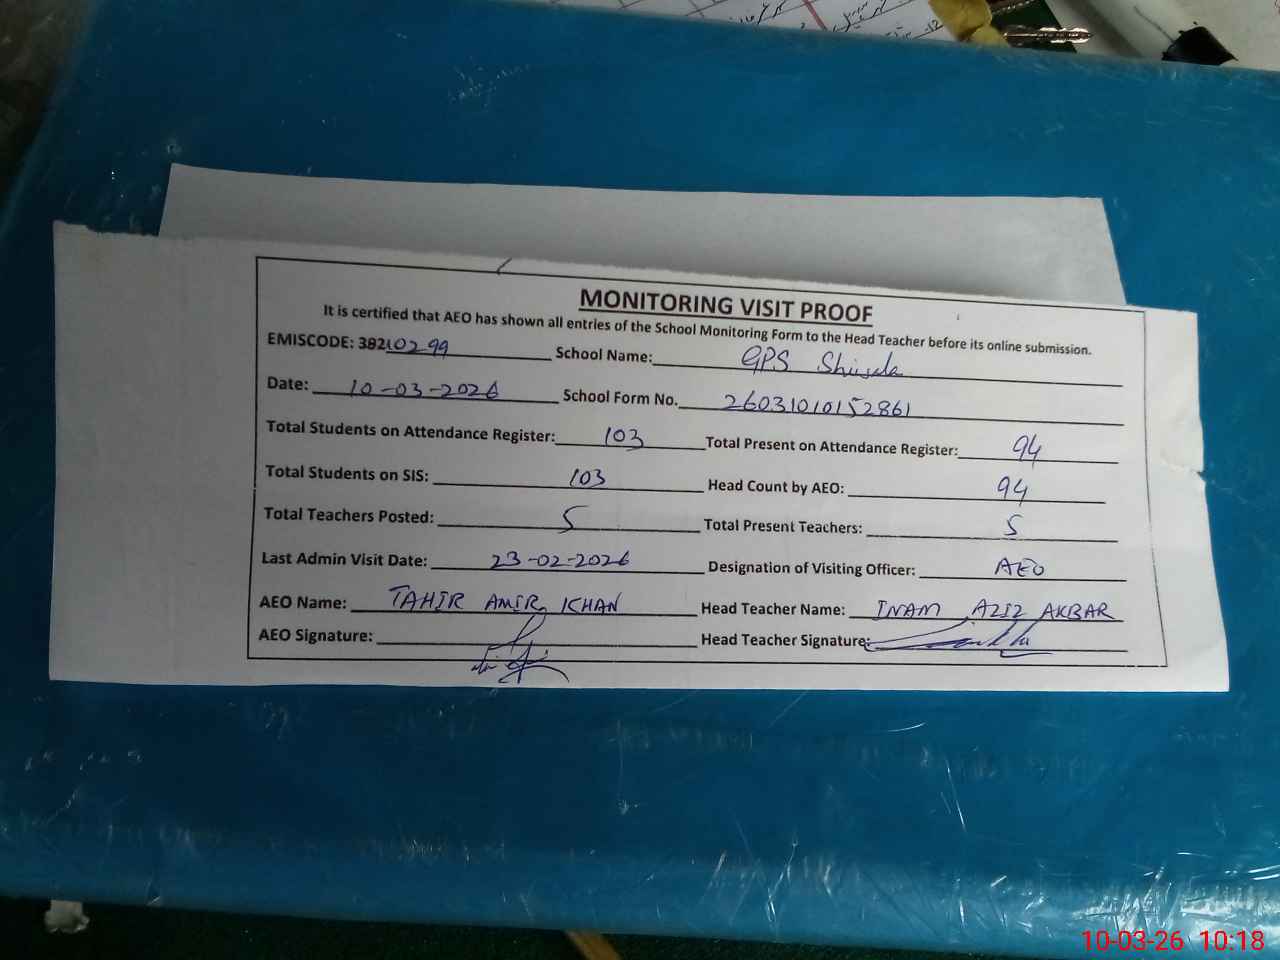 MONITORING VISIT PROOF
It is certified that AEO has shown all entries of the School Monitoring Form to the Head Teacher before its online submission.
EMISCODE: 38210299 School Name: GPS
Date: 10-03-2026 School Form No. 26031010152861
Total Students on Attendance Register: 103 Total Present on Attendance Register: 94
Total Students on SIS: 103 Head Count by AEO: 94
Total Teachers Posted: 5 Total Present Teachers: 5
Last Admin Visit Date: 23-02-2026 Designation of Visiting Officer: AEO
AEO Name: TAHIR AMIR KHAN Head Teacher Name: INAM AZIZ AKBAR
AEO Signature: Head Teacher Signature:
10-03-26 10:18